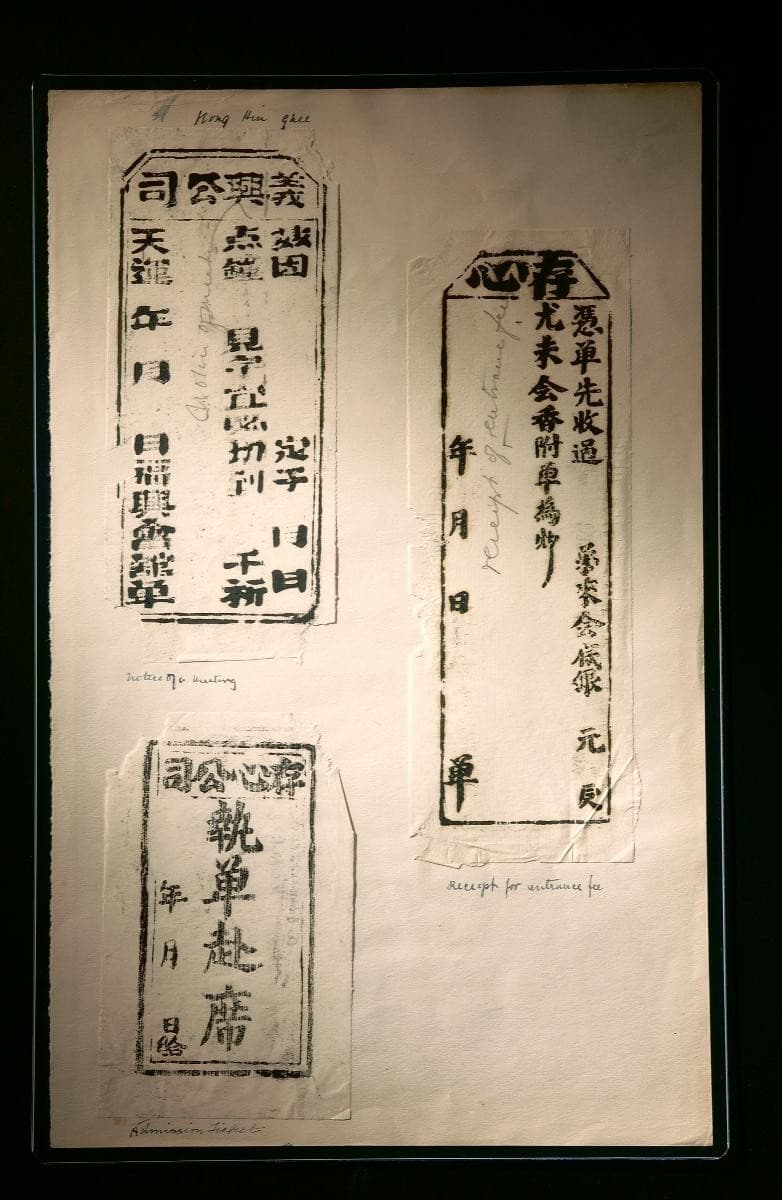 義興公司
茲因 定于 月 日
点鐘 見字宜必切到 千祈
天運 年 月 日福興會館單
notice of a meeting
存心
憑单先收過 來会 銀 元
尤未会香附单為
年 月 日 单
Receipt of entrance fee
Receipt for entrance fee
存心公司
執单赴席
年 月 日給
Admission Ticket